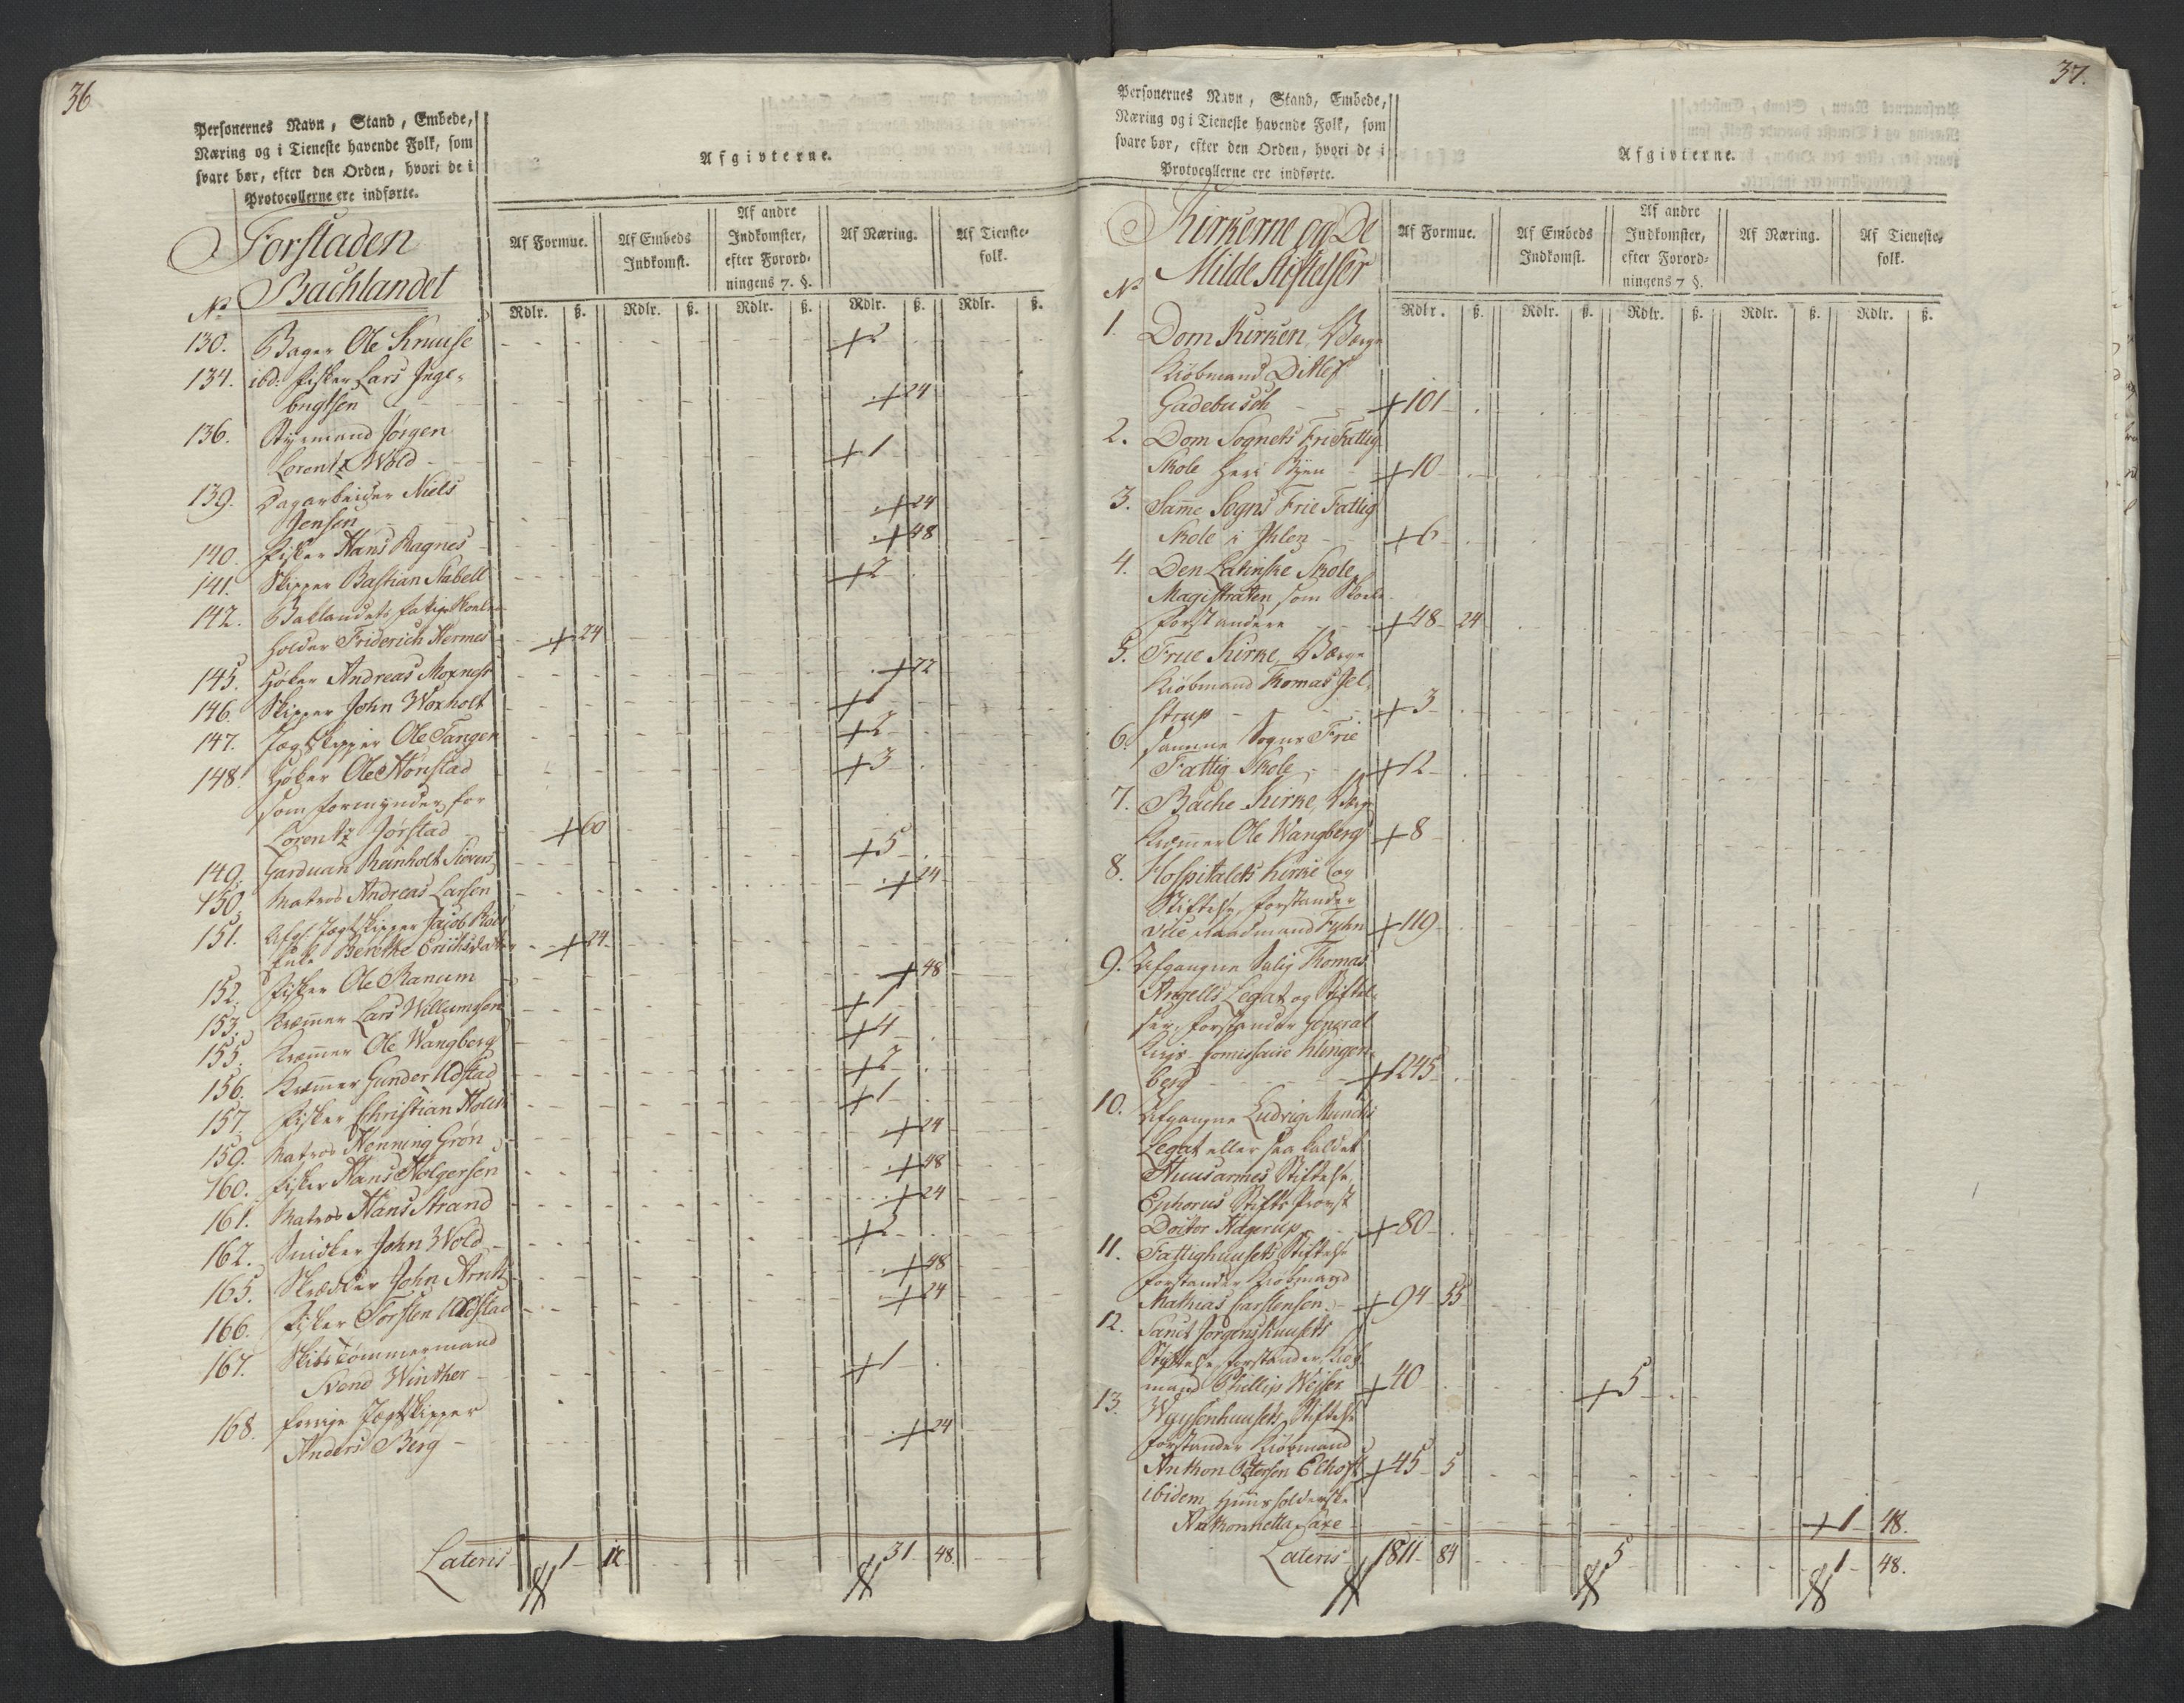 36
Personernes Navn, Stand, Embede,
Næring og i Tieneste havende Folk, som
svare bør, efter den Orden, hvori de i
Protocollerne ere indførte.
Afgivterne.
Forstaden
Bachlandet
Af Formue.
Af Embeds Indkomst.
Af andre Indkomster, efter Forordningens 7. §.
Af Næring.
Af Tienstefolk.
No
Rdlr. ß. Rdlr. ß. Rdlr. ß. Rdlr. ß. Rdlr. ß.
130. Bager Ole Knuse + 2
134. ibd: Fisker Lars Inge-
brigtsen + 24
136. Styrmand Jørgen
Lorentz Wold + 1
139. Dagarbeider Niels
Jensen + 24
140. Fisker Hans Ragnes + 48
141. Skipper Bastian Stabell + 2
142. Baklandets fattige Skole
holder Friderich Hermes + 24
145. Høker Andreas Moxness + 72
146. Skipper John Woxholt + 1
147. Jægt Skipper Ole Tangen + 2
148. Høker Ole Hønstad + 3
som formynder for
Lorentz Jørstad + 60
149. Garduan Reinholt Sivers + 5
150. Matros Andreas Larsen + 24
151. Afgl. Jægtskipper Jacob
Enke Berethe Erichsdatter + 24
152. Fisker Ole Ranum + 48
153. Kræmer Lars Willumsen + 1
155. Kræmer Ole Wangberg + 4
156. Kræmer Gunder Udstad + 2
157. Fisker Christian Holm + 1
159. Matros Henning Grøn + 24
160. Fisker Hans Holgersen + 48
161. Matros Hans Strand + 24
162. Snidker John Wold + 2
165. Skrædder John Arntz + 48
166. Fisker Torsten Udstad + 24
167. Skibstømmermand
Svend Winther + 1
168. forrige Jægtskipper
Anders Berg + 24
Lateris 1 12 31 48.
37.
Personernes Navn, Stand, Embede,
Næring og i Tieneste havende Folk, som
svare bør, efter den Orden, hvori de i
Protocollerne ere indførte.
Afgivterne.
Kirkerne og De
Milde Stiftelser
Af Formue.
Af Embeds Indkomst.
Af andre Indkomster, efter Forordningens 7 §.
Af Næring.
Af Tienestefolk.
No
Rdlr. ß. Rdlr. ß. Rdlr. ß. Rdlr. ß. Rdlr. ß.
1. Dom Kirken, Værge
Kiøbmand Ditlef
Gadebusch + 101
2. Dom Sognets Frie Fattig
Skole her i Byen + 10
3. Samme Sogns Frie Fattig
Skole i Ihlen + 6
4. Den Latinske Skole,
Magistraten som Skole
forstandere + 48 24
5. Frue Kirke, Værge
Kiøbmand Thomas Jel-
strup + 3
6. Samme Sogns Frie
Fattig Skole + 12
7. Bache Kirke, Værge
Kræmer Ole Wangberg + 8
8. Hospitalets Kirke og
Stiftelse, forstander
Raadmand Fyhn + 119
9. Afgangne Salig Thomas
Angells Legat og Stiftel-
ser, forstander General
Krigs Comissaire Klingen-
berg + 1245
10. Afgangne Ludvig Munchs
Legat eller saa kaldet
Huusarmes Stiftelse,
Ephorus Stifts Provst
Doctor Hagerup + 80
11. Fattighuusets Stiftelse
forstander Kiøbmand
Mathias Carstensen + 94 55
12. Sanct Jørgenshuusets
Stiftelse, forstander Kiøb-
mand Phillip Weiser + 40 + 5
13. Waysenhuusets Stiftelse
forstander Kiøbmand
Anthon Petersen Elhost + 45 5
ibidem Huusholderske
Anthonnetta Saxe + 1 48.
Lateris 1811 84 5 1 48.